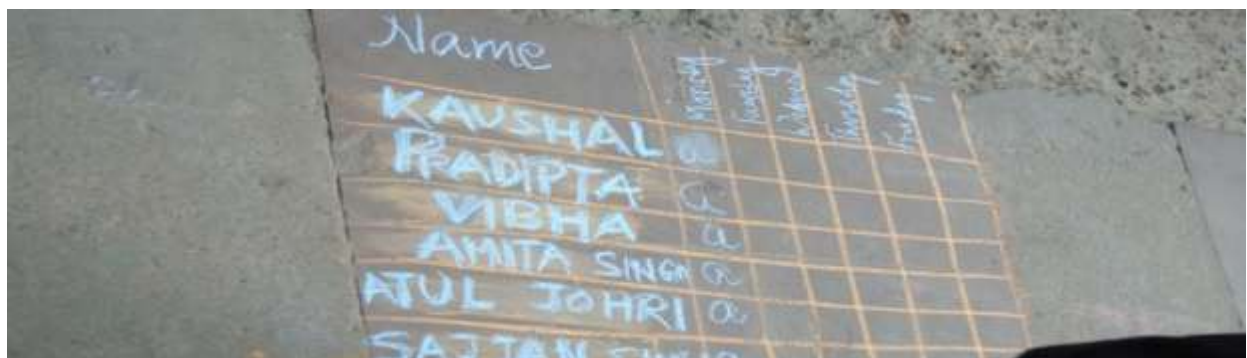 Name Monday Tuesday Wednesd Thursday Friday
KAUSHAL a
PRADIPTA a
VIBHA a
AMITA SINGH a
ATUL JOHRI a
SAJJAN